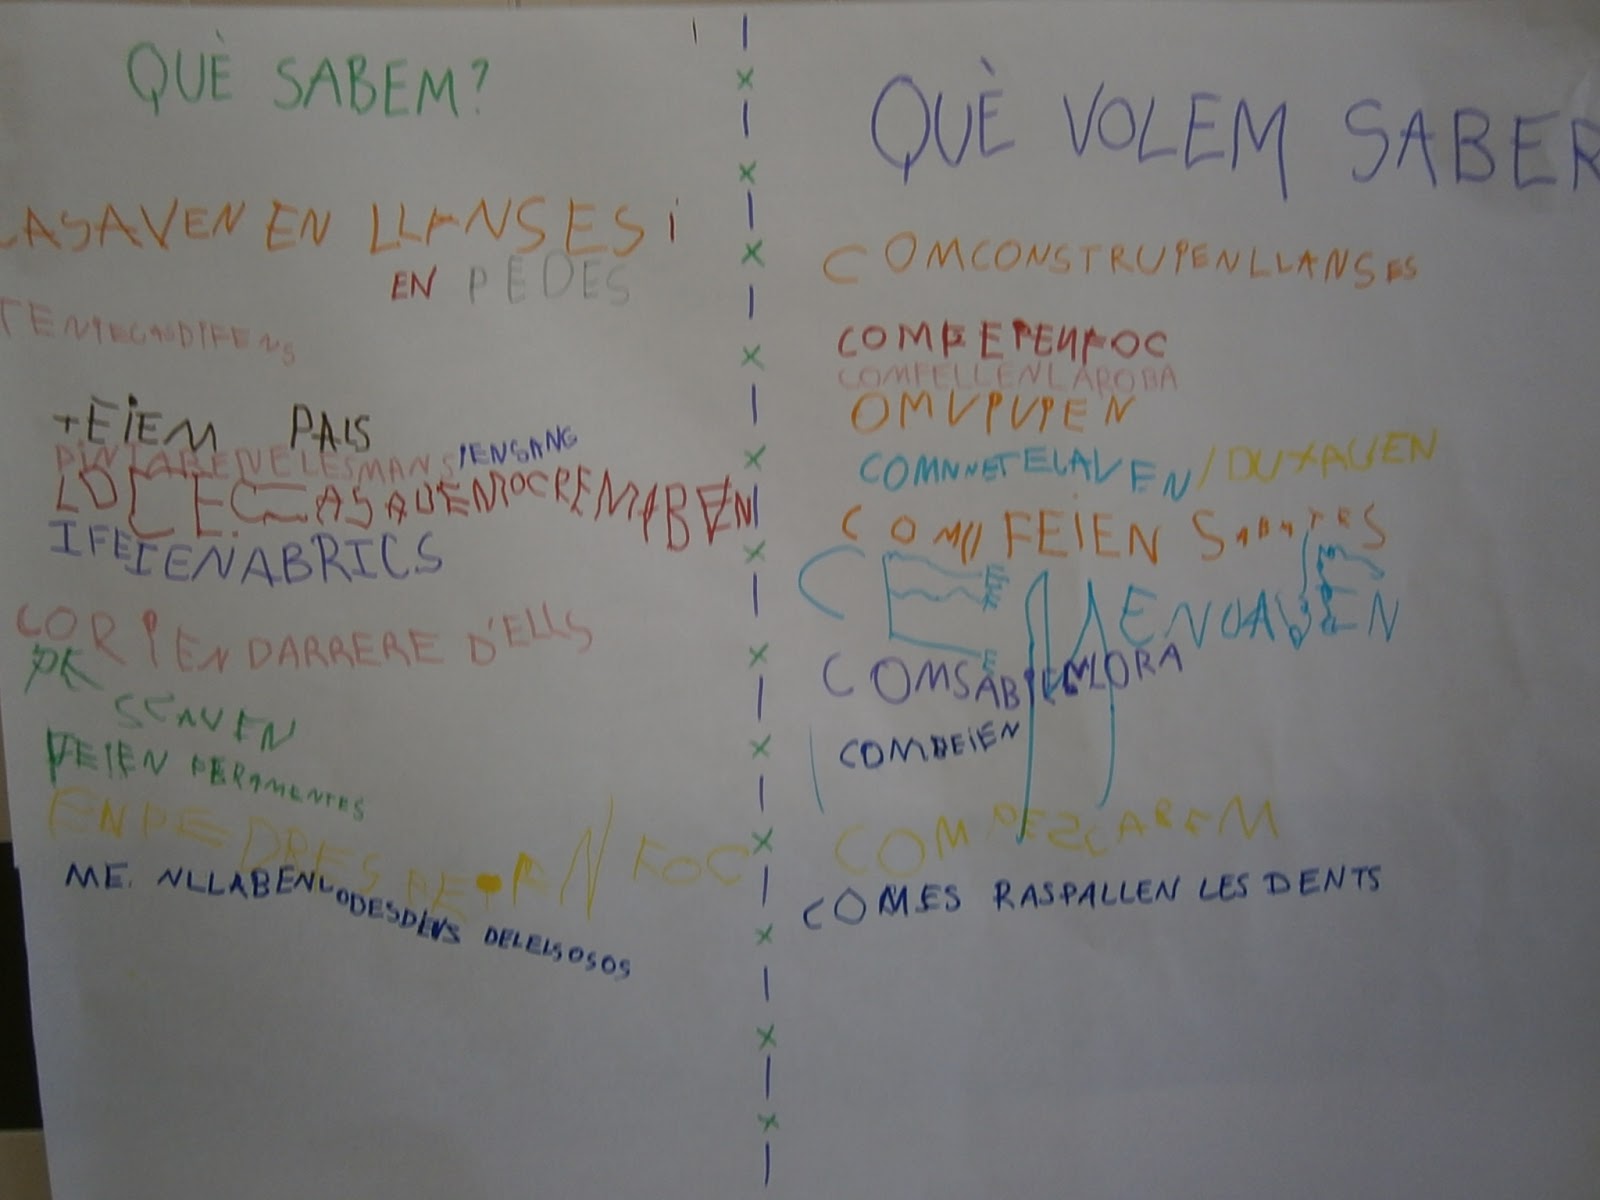 QUÈ SABEM?
CASAVEN EN LLANSES i
EN PEDES
TEIEM PALS
PINTABEN LESMANS IENSANG
LO CE CASAUENTOCREMABEN
IFEIENABRICS
CORRIENDARRERE D'ELLS
PESCAVEN
FEIEN PERAMENTES
ENPEDRES FOC
ME. NLLABENLODESDEUS DELELSOSOS
QUÈ VOLEM SABER
COMCONSTRUIENLLANSES
COMFEIENFOC
COMFEIENLAROBA
OMVIVIEN
COMNNETEJAVEN/DUXAVEN
COM FEIEN SABATES
COMSABIENLORA
COMBEIEN
COMPESCABEM
COMES RASPALLEN LES DENTS